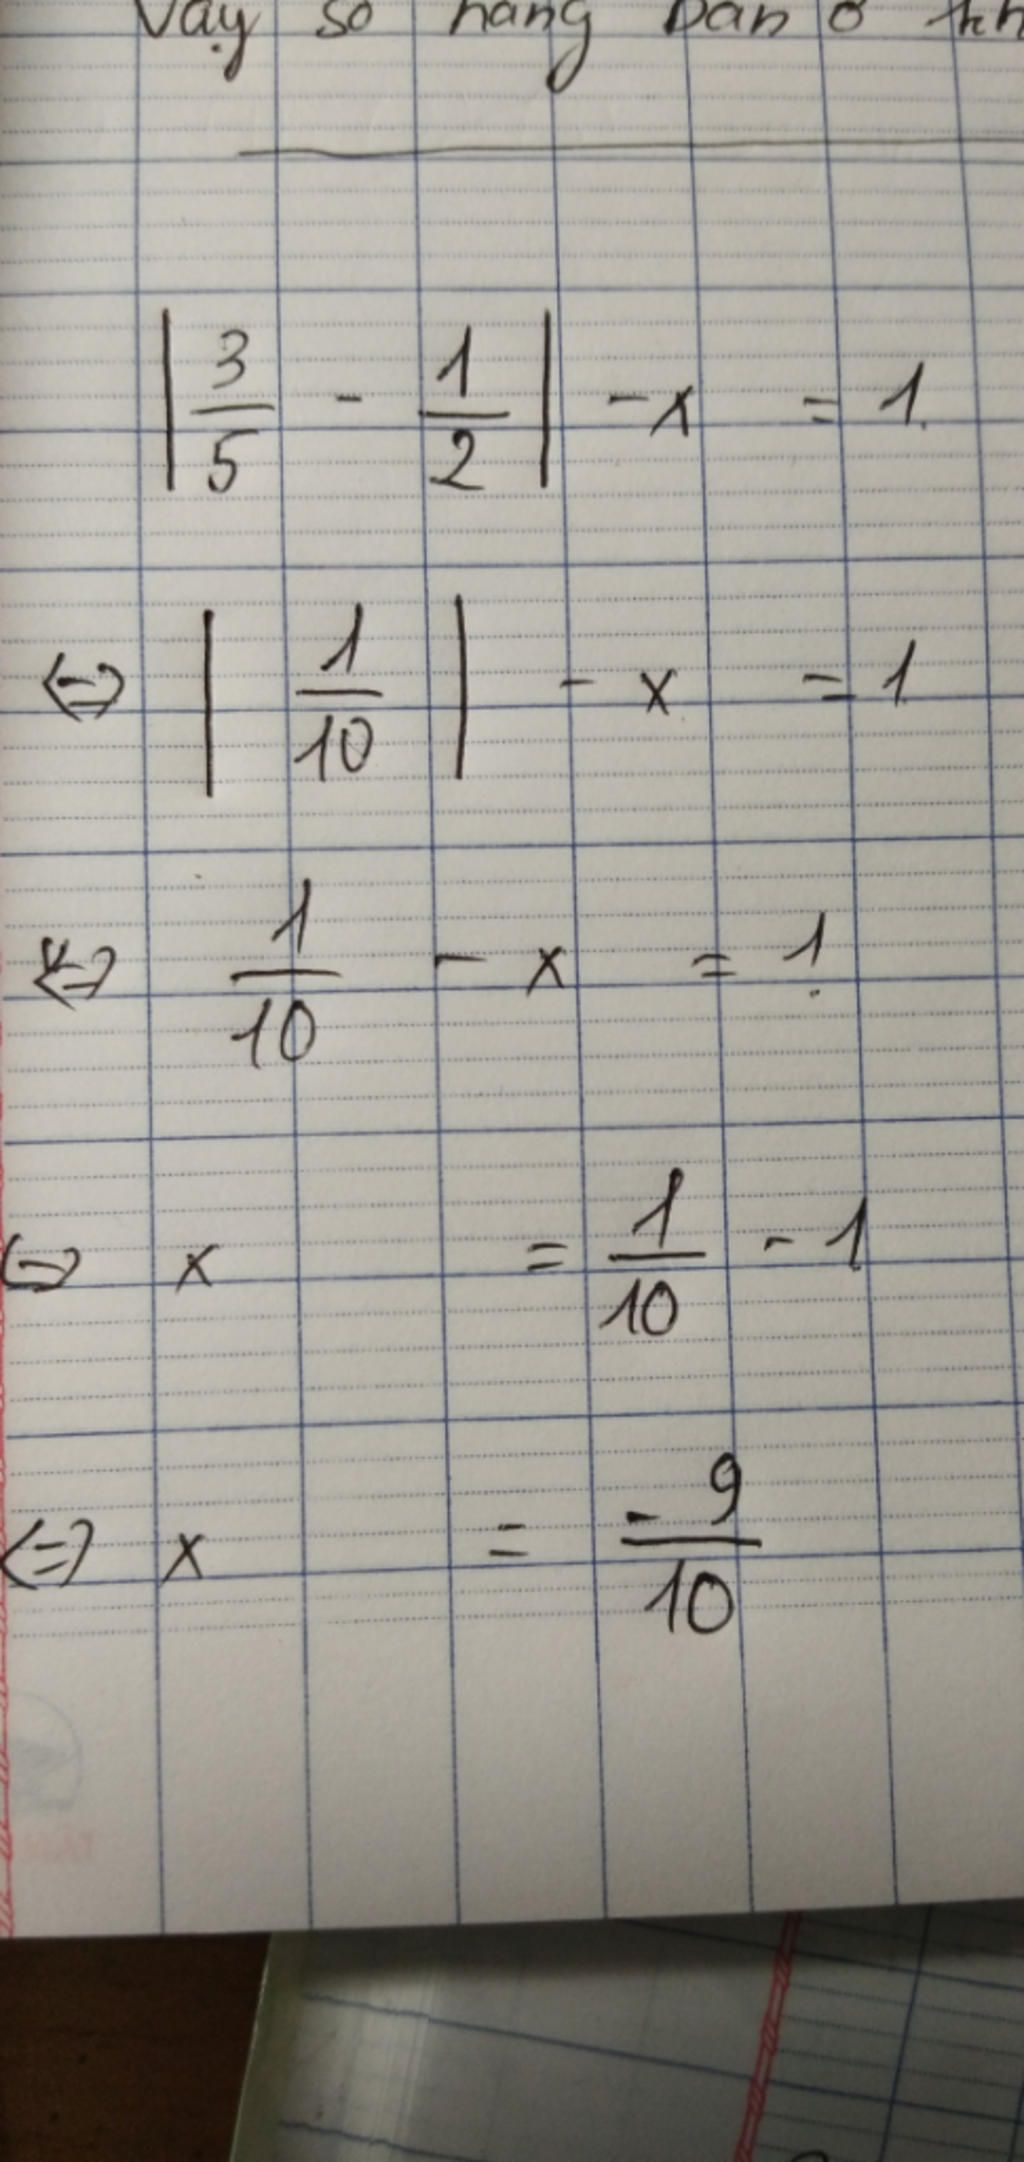 Vậy số hàng bán ở
|3/5 - 1/2| - x = 1
⇔ |1/10| - x = 1
⇔ 1/10 - x = 1
⇔ x = 1/10 - 1
⇔ x = -9/10